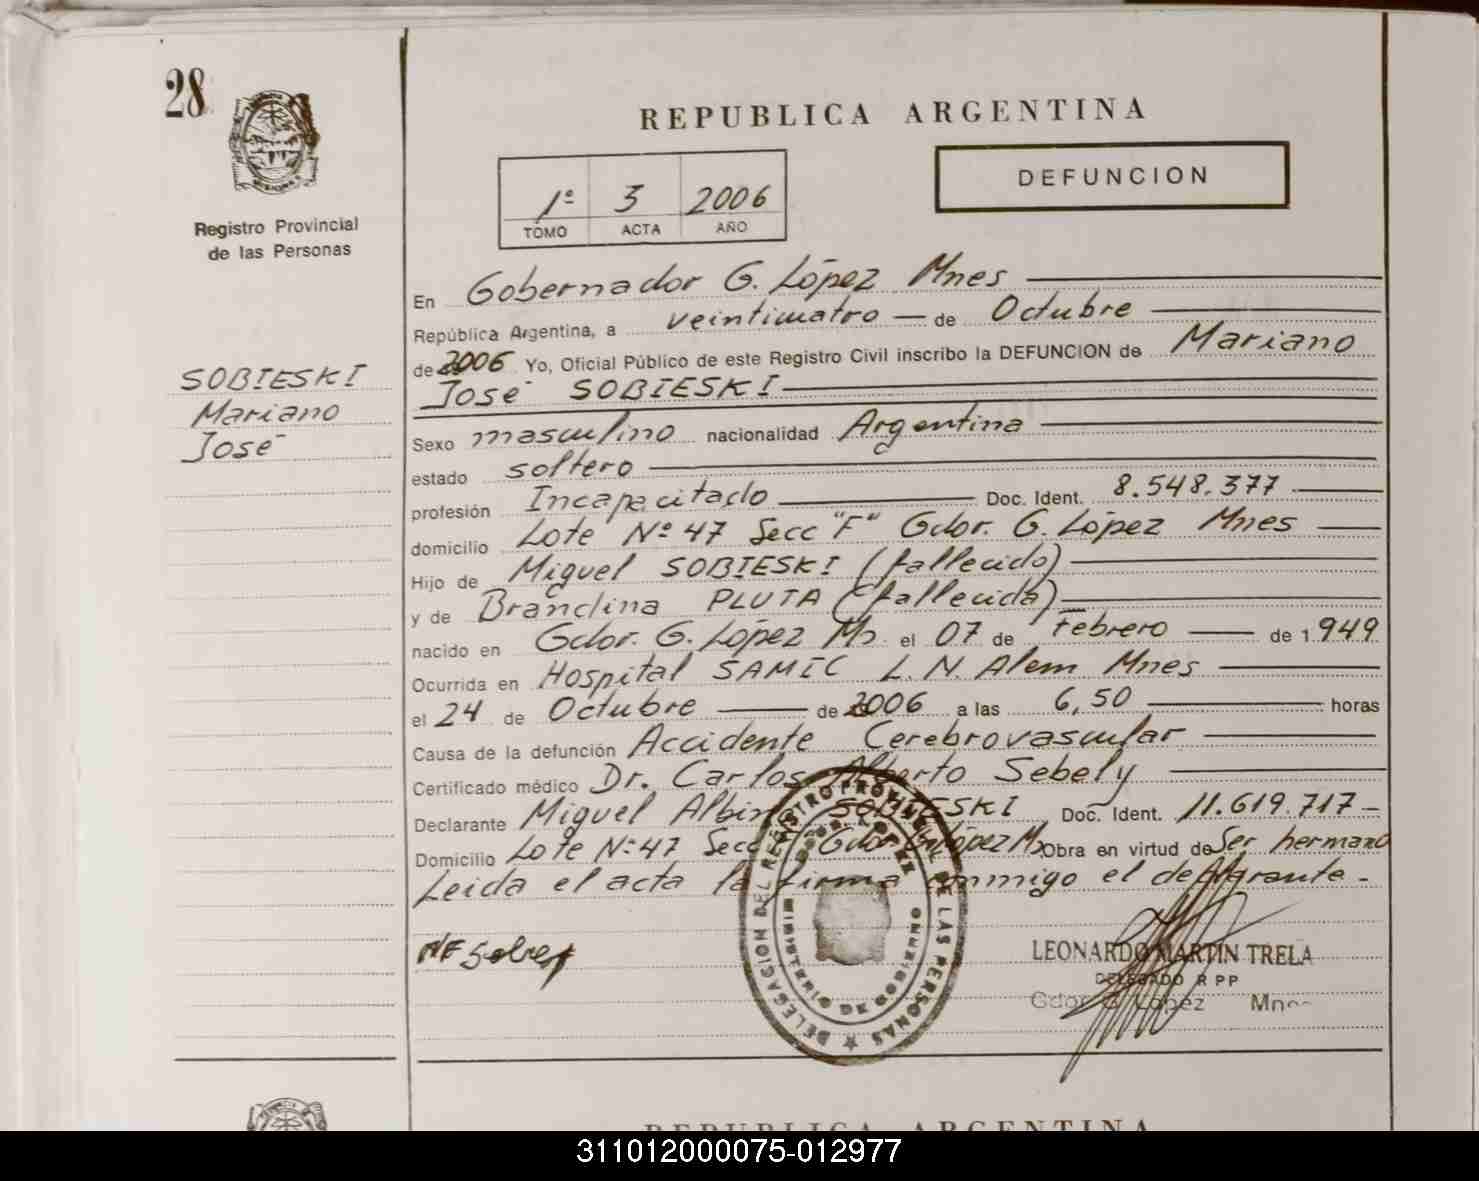 28
REPUBLICA ARGENTINA
DEFUNCION
1º 3 2006
TOMO ACTA AÑO
Registro Provincial
de las Personas
SOBIESKI
Mariano
José
En Gobernador G. López Mnes
República Argentina, a veinticuatro de Octubre
de 2006 Yo, Oficial Público de este Registro Civil inscribo la DEFUNCION de Mariano
José SOBIESKI
Sexo masculino nacionalidad Argentina
estado soltero
profesión Incapacitado Doc. Ident. 8.548.377
domicilio Lote Nº 47 Secc "F" Gdor. G. López Mnes
Hijo de Miguel SOBIESKI (fallecido)
y de Brandina PLUTA (fallecida)
nacido en Gdor. G. López Ms. el 07 de Febrero de 1.949
Ocurrida en Hospital SAMIC L.N. Alem Mnes
el 24 de Octubre de 2006 a las 6,50 horas
Causa de la defunción Accidente Cerebrovascular
Certificado médico Dr. Carlos Alberto Sebely
Declarante Miguel Albin SOBIESKI Doc. Ident. 11.619.717
Domicilio Lote Nº 47 Secc Gdor G. López Ms. Obra en virtud de Ser hermano
Leida el acta la firma conmigo el declarante.
DELEGACION DEL REGISTRO PROVINCIAL DE LAS PERSONAS
GDOR. LOPEZ
MINISTERIO DE GOBIERNO
LEONARDO MARTIN TRELA
DELEGADO R P P
Gdor G López Mnes
REPUBLICA ARGENTINA
311012000075-012977